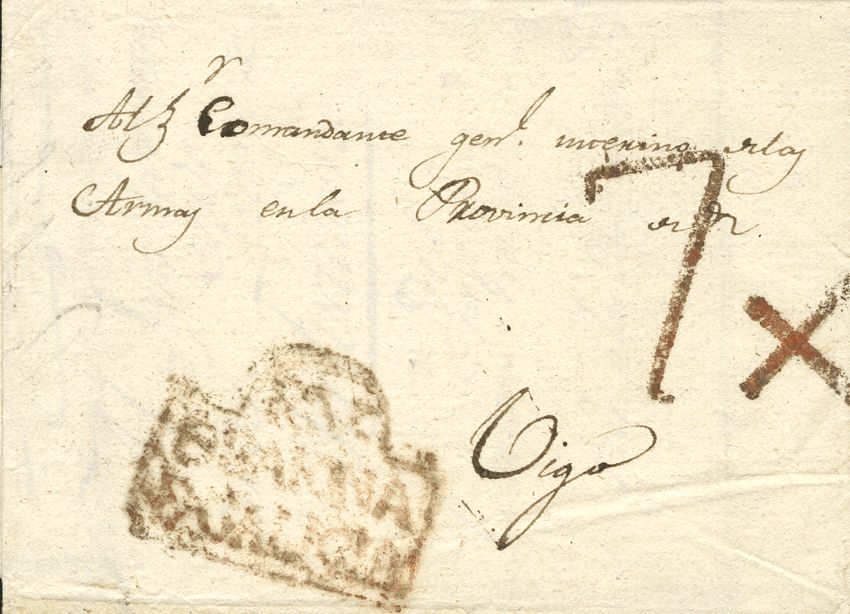 Al Sr Comandante genl. interino de las
Armas en la Provincia de
7
Vigo
CORUÑA
GALICIA